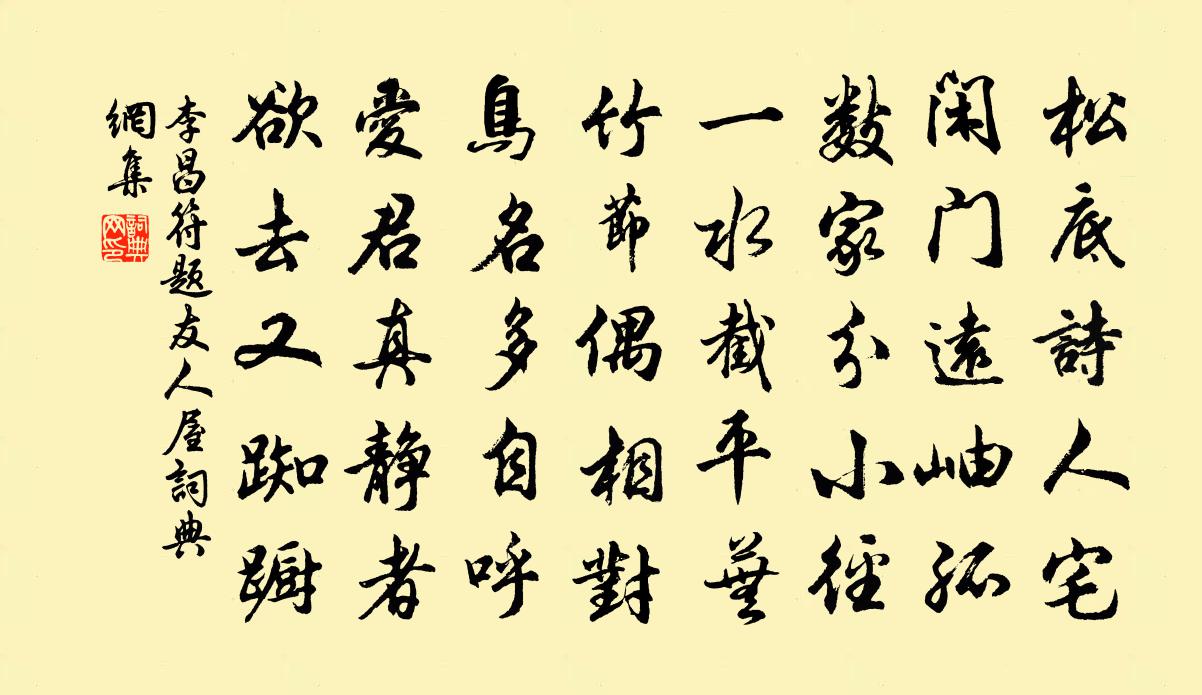 松底詩人宅
閑门遠岫孤
數家分小徑
一水截平蕪
竹節偶相對
鳥名多自呼
愛君真静者
欲去又踟躕
李昌符题友人屋詞典
網集
詞典
网印